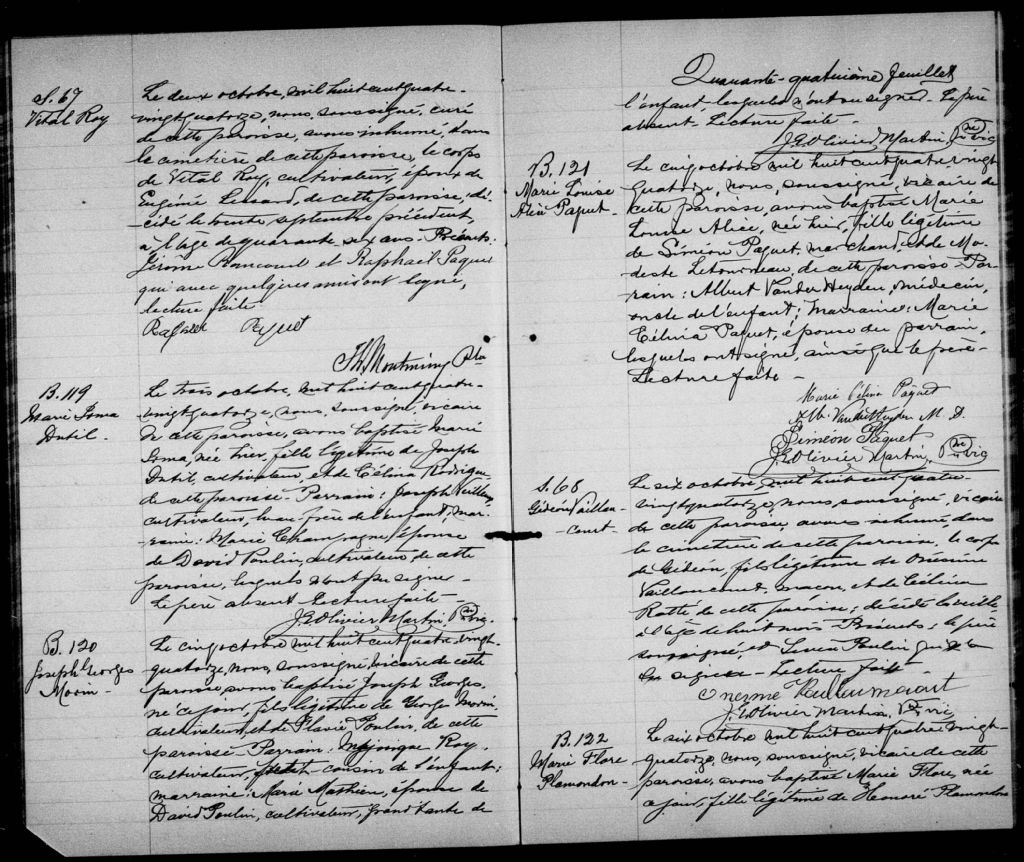 S. 67
Vital Roy
Le deux octobre, mil huit cent quatre-
vingt quatorze, nous, soussigné, curé
de cette paroisse, avons inhumé, dans
le cimetière de cette paroisse, le corps
de Vital Roy, cultivateur, époux de
Eugénie Lessard, de cette paroisse, dé-
cédé le trente septembre précédent,
à l'âge de quarante six ans. Présents:
Jérôme Rancourt et Raphaël Paquet
qui avec quelques amis ont signé,
lecture faite
Th. Montminy Ptre
B. 119
Marie Irma
Dutil.
Le trois octobre, mil huit cent quatre-
vingt quatorze, nous, soussigné, vicaire
de cette paroisse, avons baptisé Marie
Irma, née hier, fille légitime de Joseph
Dutil, cultivateur, et de Célina Rodrigue
de cette paroisse - Parrain: Joseph Veilleux,
cultivateur, beau-frère de l'enfant; mar-
raine: Marie épouse
de David Poulin, cultivateur, de cette
paroisse, lesquels n'ont pu signer -
Le père absent - Lecture faite -
J. E. Olivier Martin, Ptre vic.
B. 120
Joseph Georges
Morin -
Le cinq octobre mil huit cent quatre-vingt
quatorze, nous, soussigné, vicaire de cette
paroisse, avons baptisé Joseph Georges,
né ce jour, fils légitime de George Morin,
cultivateur, et de Flavie Poulin, de cette
paroisse - Parrain: Roy,
cultivateur, petit-cousin de l'enfant;
marraine: Marie Mathieu, épouse de
David Poulin, cultivateur, grand'tante de
Quarante-quatrième feuillet
l'enfant lesquels n'ont su signer - Le père
absent - Lecture faite -
J. E. Olivier Martin, Ptre vic
B. 121
Marie Louise
Alice Paquet -
Le cinq octobre mil huit cent quatre-vingt
quatorze, nous, soussigné, vicaire de
cette paroisse, avons baptisé Marie
Louise Alice, née hier, fille légitime
de Siméon Paquet, marchand, et de Mo-
deste Letourneau, de cette paroisse - Par-
rain: Albert Vander Heyden, médecin,
oncle de l'enfant; marraine: Marie
Célina Paquet, épouse du parrain,
lesquels ont signé, ainsi que le père -
Lecture faite -
Marie Célina Paquet
Alb. VanderHeyden M. D.
Siméon Paquet
J. E. Olivier Martin, Ptre vic
S. 68
Gédéon Vaillan-
court -
Le six octobre, mil huit cent quatre-
vingt quatorze, nous, soussigné, vicaire
de cette paroisse, avons inhumé, dans
le cimetière de cette paroisse, le corps
de Gédéon, fils légitime de Onésime
Vaillancourt, maçon, et de Célina
Ratté de cette paroisse; décédé la veille
à l'âge de huit mois - Présents: le père
soussigné, et Poulin qui n'a
su signer - Lecture faite -
J. E. Olivier Martin, Ptre vic
B. 122
Marie Flore
Plamondon -
Le six octobre mil huit cent quatre vingt-
quatorze, nous, soussigné, vicaire de cette
paroisse, avons baptisé Marie Flore, née
ce jour, fille légitime de Honoré Plamondon